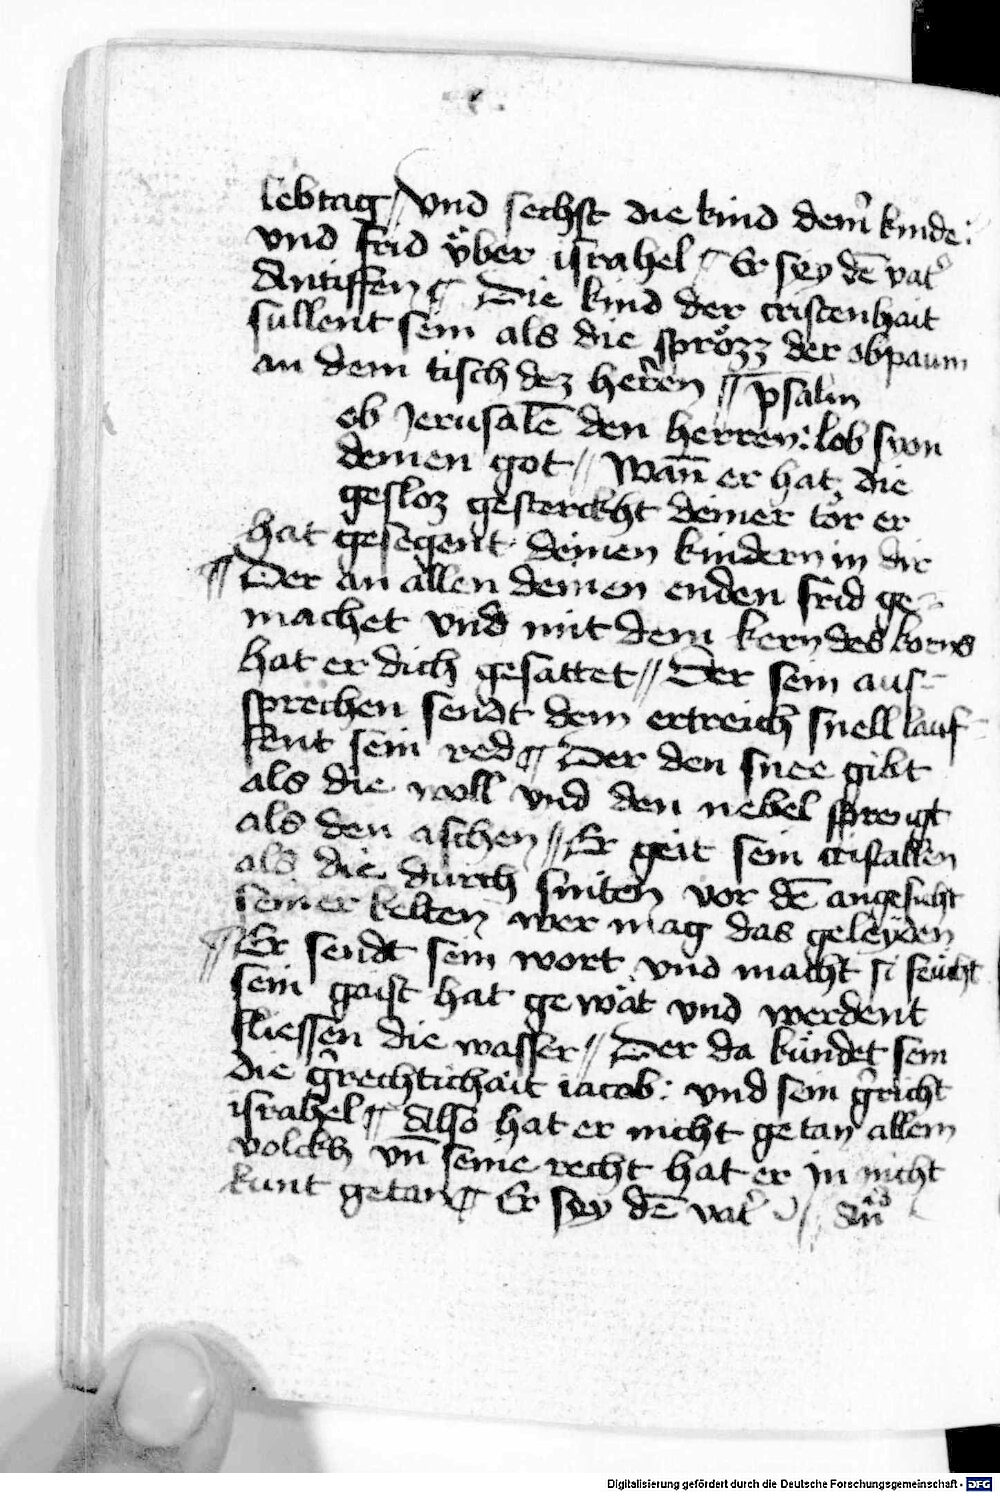 lebtag // vnd sechst die kind deiñ kinde:
vnd frid v̈ber israhel ¶ Er sey dē vatˀ
Antiffen ¶ Die kind der cristenhait
sullent sein als die sprözz der obpaum
an dem tisch dez herren ¶ psalm
ob Jerusalē den herren: lob syon
deinen got // Wañ er hat die
gesloz gesterckht deiner tör er
hat gesegent deinen kindern in dir
¶ Der an allen deinen enden frid ge-
machet vnd mit dem kern des korns
hat er dich gesattet // Der sein aus-
sprechen sendt dem ertreich snell lauf-
fent sein red ¶ Der den snee gibt
als die woll vnd den nebel sprengt
als den aschen // Er geit sein cristallen
als die durch sniten vor dē angesicht
seiner kelten wer mag das geleyden
¶ Er sendt sein wort vnd macht si feücht
sein gaist hat gewät vnd werdent
fliessen die wasser // Der da kündet sein
die gˀrechtichait iacob: vnd sein gˀricht
israhel ¶ Also hat er nicht getan allem
volckh vñ seine recht hat er jn nicht
kunt getan ¶ Er sey dē vatˀ
Digitalisierung gefördert durch die Deutsche Forschungsgemeinschaft - DFG